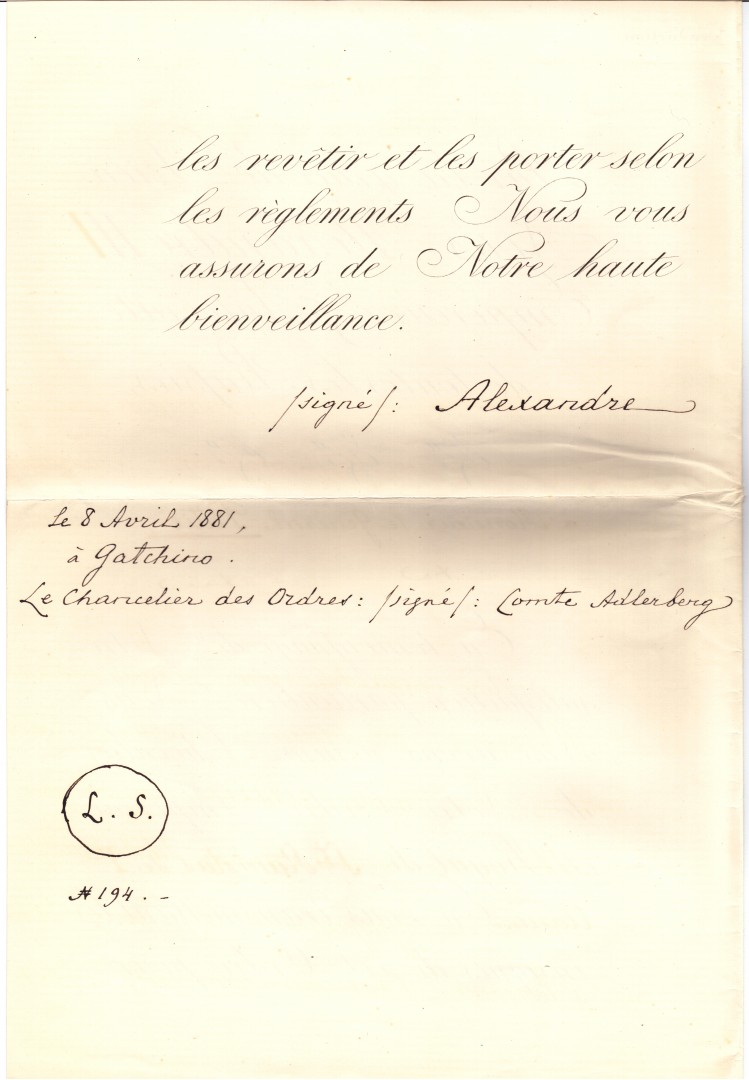 les revêtir et les porter selon
les règlements Nous vous
assurons de Notre haute
bienveillance.
/signé/: Alexandre
Le 8 Avril 1881,
à Gatchino.
Le Chancelier des Ordres: /signé/: Comte Adlerberg
L. S.
# 194. -